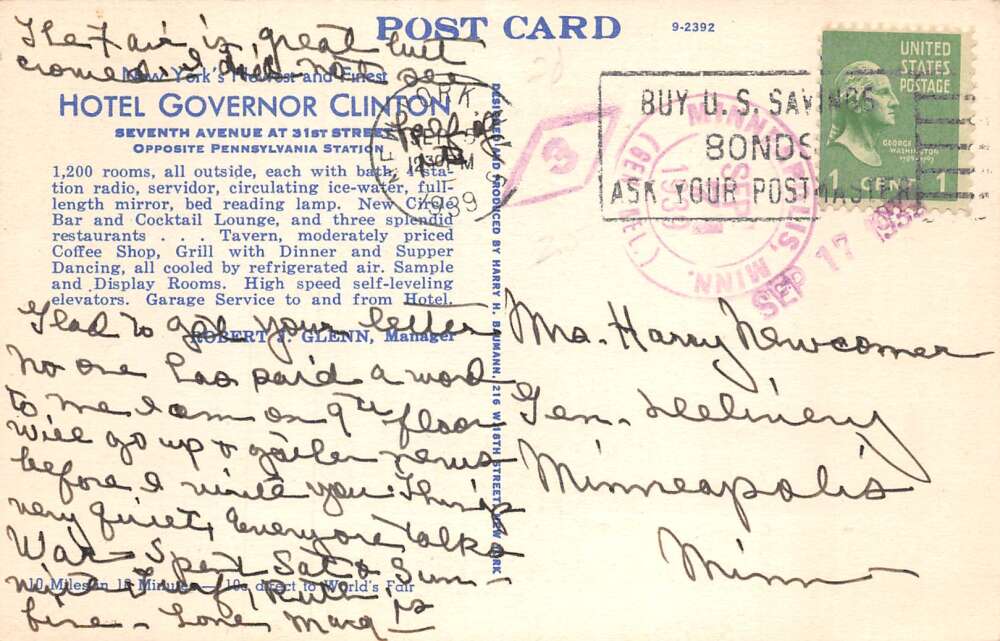 POST CARD
9-2392
The Fair is great but
crowded. I did not see
New York's Newest and Finest
HOTEL GOVERNOR CLINTON
SEVENTH AVENUE AT 31ST STREET
OPPOSITE PENNSYLVANIA STATION
1,200 rooms, all outside, each with bath, sta-
tion radio, servidor, circulating ice-water, full-
length mirror, bed reading lamp. New Circle
Bar and Cocktail Lounge, and three splendid
restaurants . . . Tavern, moderately priced
Coffee Shop, Grill with Dinner and Supper
Dancing, all cooled by refrigerated air. Sample
and Display Rooms. High speed self-leveling
elevators. Garage Service to and from Hotel.
ROBERT J. GLENN, Manager
Glad to get your letter
No one has paid a word
to me I am on 9th floor
Will go up & gather news
before I write you. This is
very quiet, everyone talks
War - Spent Sat & Sun -
with Ruth is
fine - Love Marg -
10 Miles in 10 Minutes — 10c direct to World's Fair
DESIGNED AND PRODUCED BY HARRY H. BAUMANN, 216 W 18TH STREET, NEW YORK
NEW YORK
SEP 5
12 30 PM
1939
3
BUY U. S. SAVINGS
BONDS
ASK YOUR POSTMASTER
MINNEAPOLIS, MINN.
(GEN. DEL.)
SEP
1939
SEP 17 1939
UNITED
STATES
POSTAGE
GEORGE
WASHINGTON
1789-1797
1 CENT 1
Mrs. Harry Newcomer
Gen. Delivery
Minneapolis
Minn